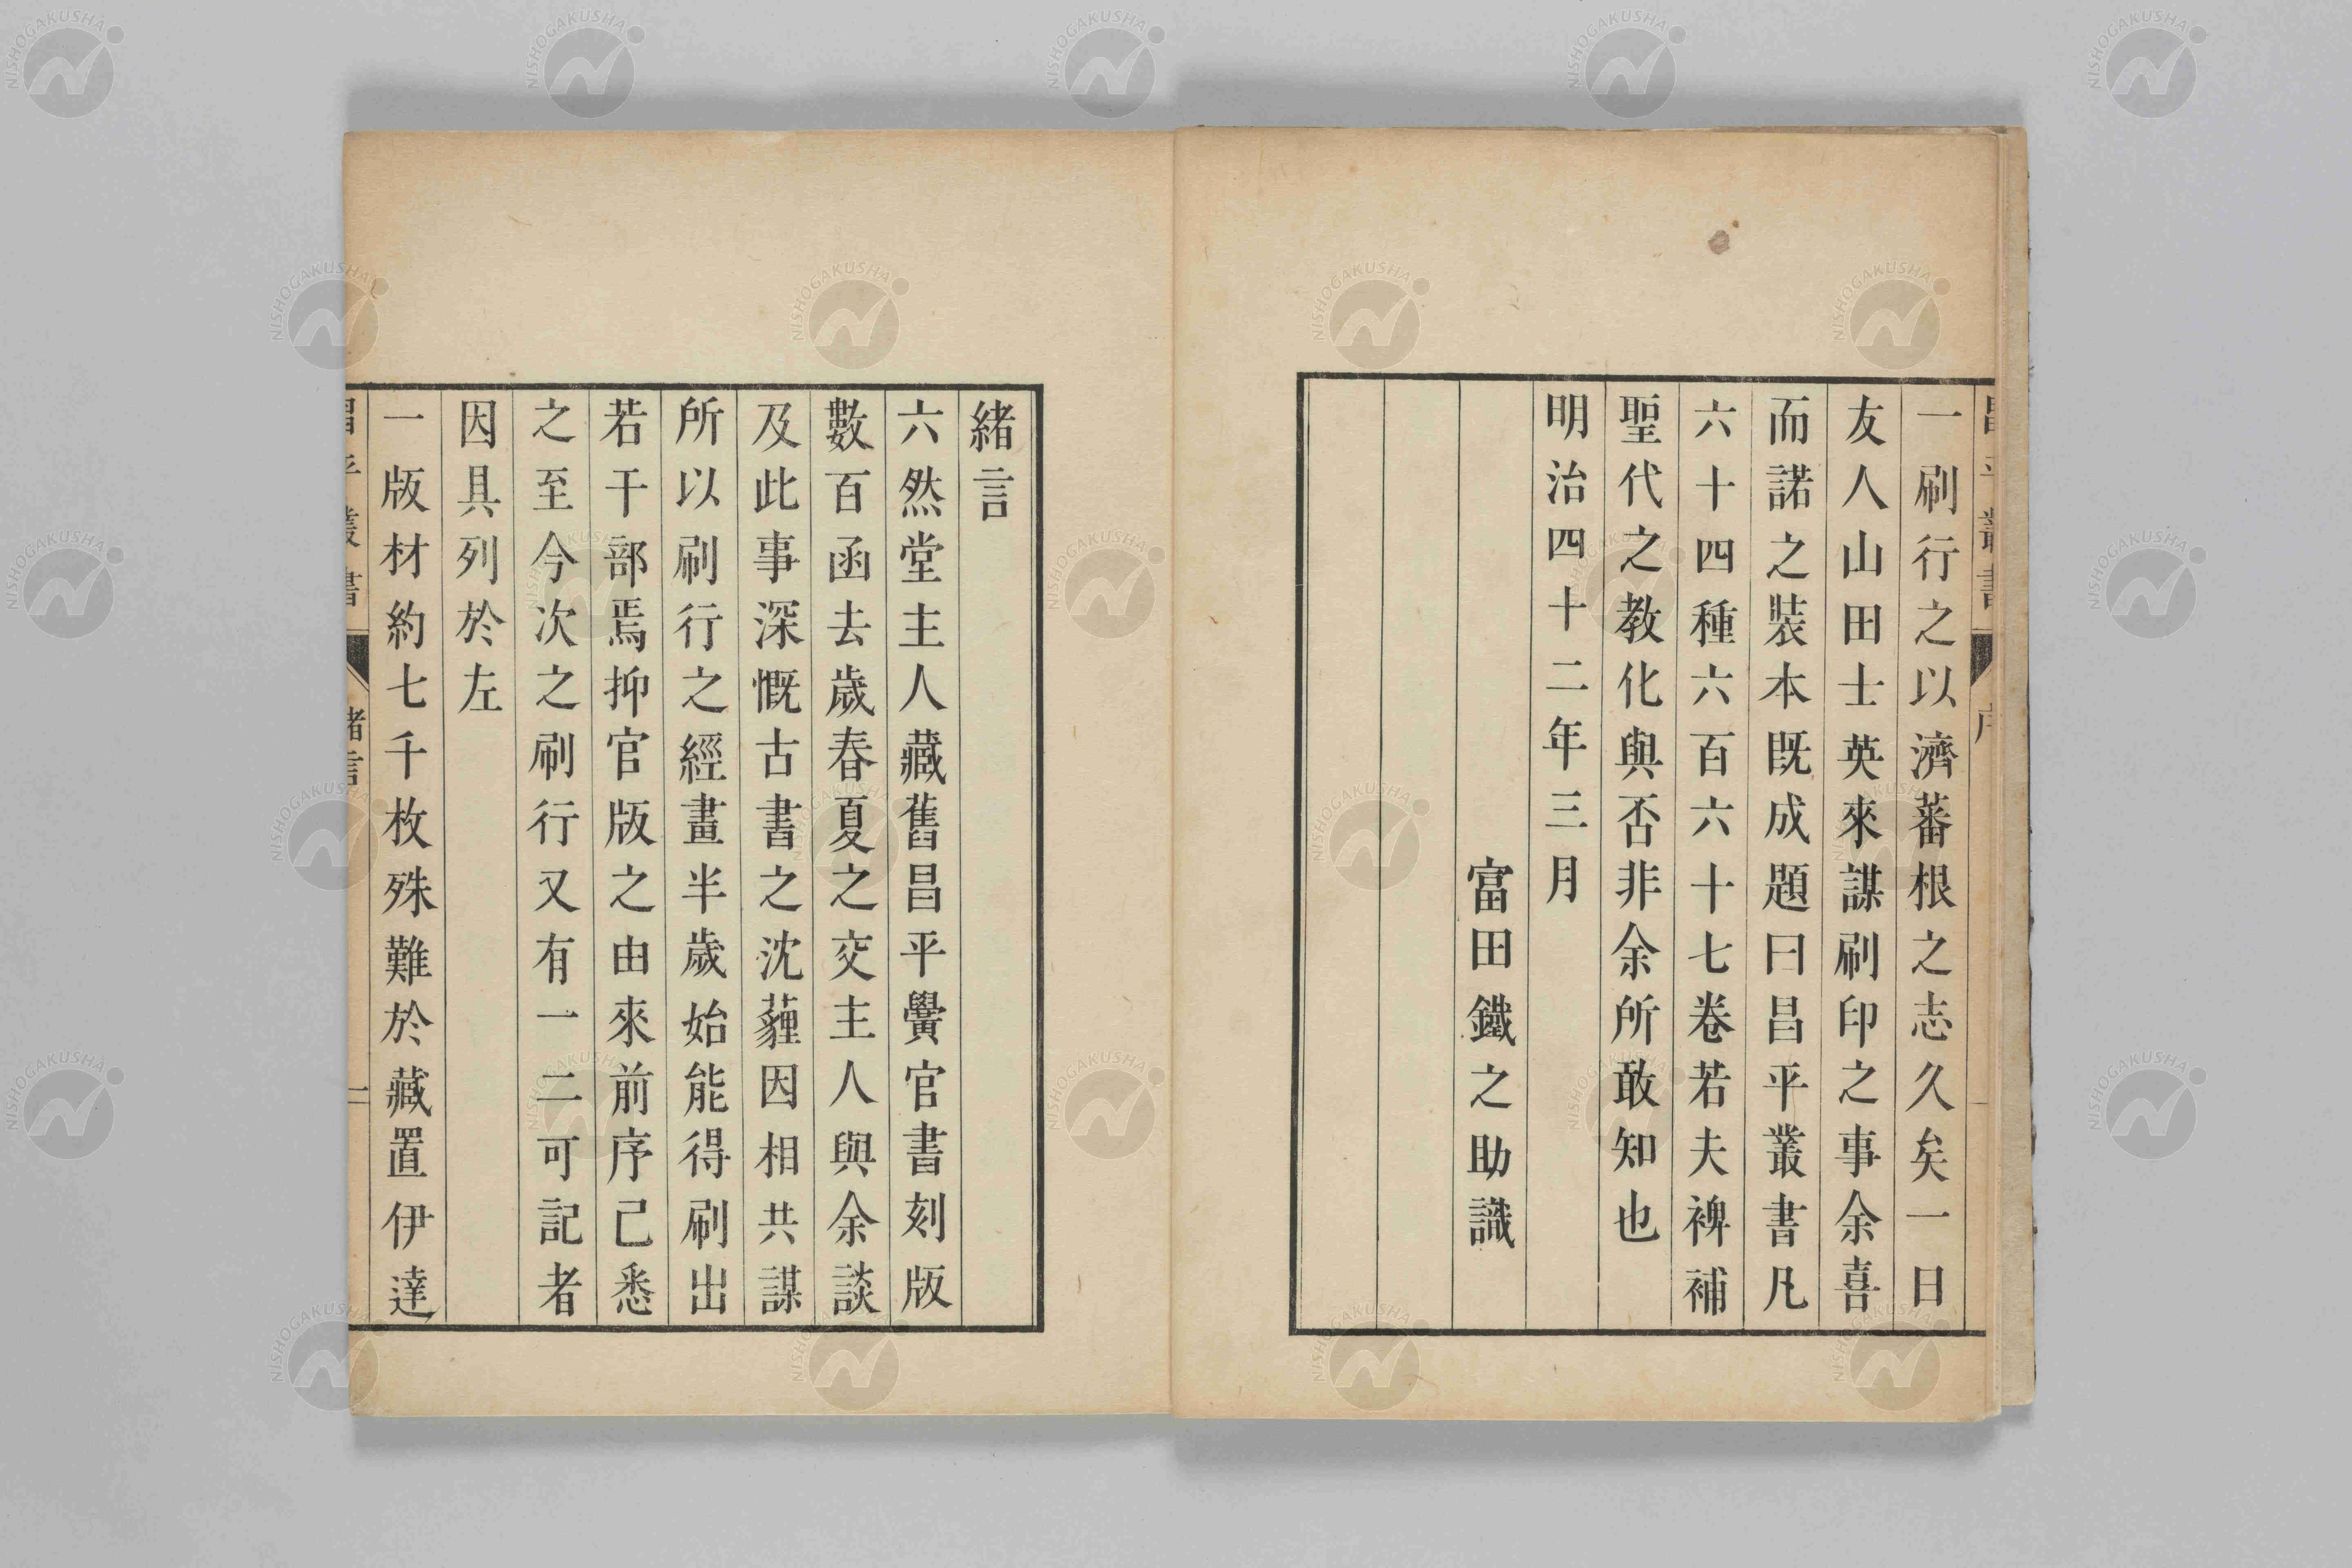 一刷行之以濟蕃根之志久矣一日
友人山田士英來謀刷印之事余喜
而諾之裝本既成題曰昌平叢書凡
六十四種六百六十七卷若夫裨補
聖代之教化與否非余所敢知也
明治四十二年三月
富田鐵之助識
緒言
六然堂主人藏舊昌平黌官書刻版
數百函去歲春夏之交主人與余談
及此事深慨古書之沈薶因相共謀
所以刷行之經畫半歲始能得刷出
若干部焉抑官版之由來前序已悉
之至今次之刷行又有一二可記者
因具列於左
一版材約七千枚殊難於藏置伊達
昌平叢書
緒言
一
NISHOGAKUSHA